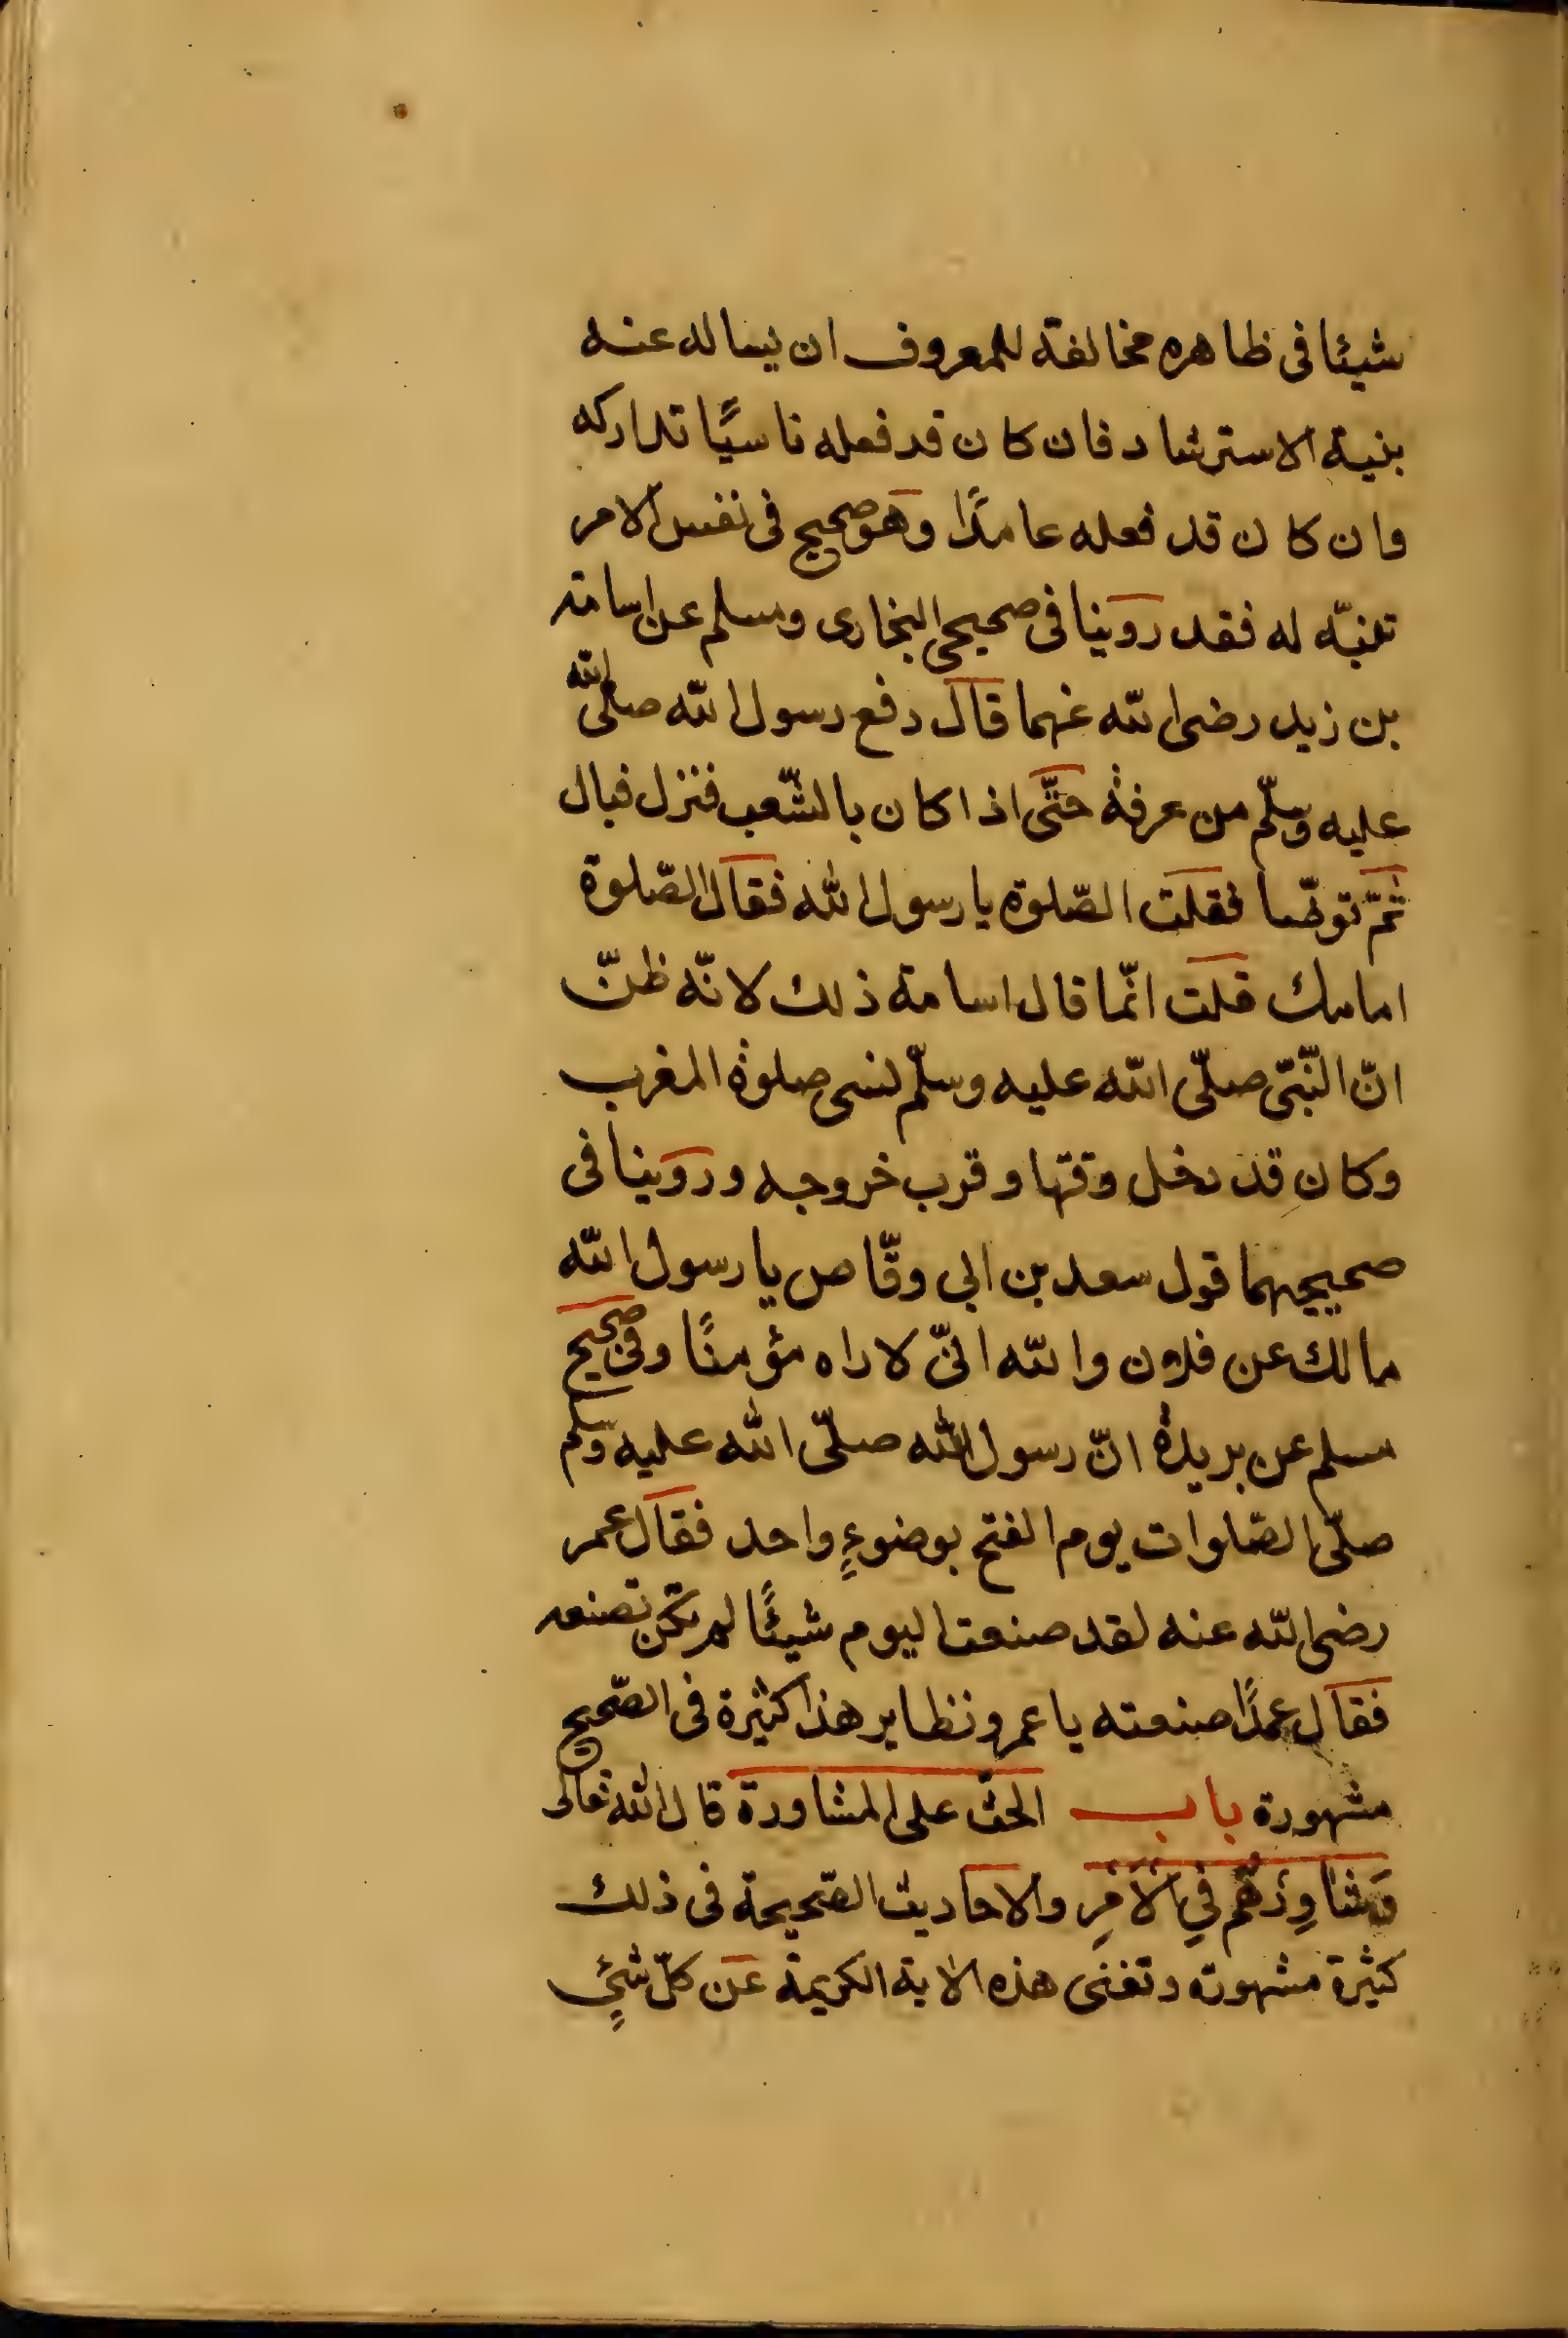 شيئا فى ظاهره مخالفة للمعروف ان يساله عنه
بنية الاسترشاد فان كان قد فعله ناسيًا تداركه
وان كان قد فعله عامدًا وهو صحيح فى نفس الامر
تنبّه له فقد روينا فى صحيحى البخارى ومسلم عن اسامة
بن زيد رضى الله عنهما قال دفع رسول الله صلّى الله
عليه وسلّم من عرفة حتّى اذا كان بالشّعب فنزل فبال
ثمّ توضّا فقلت الصّلوة يا رسول الله فقال الصّلوة
امامك قلت انّما قال اسامة ذلك لانّه ظنّ
انّ النّبىّ صلّى الله عليه وسلّم نسى صلوة المغرب
وكان قد دخل وقتها وقرب خروجه وروينا فى
صحيحيهما قول سعد بن ابى وقّاص يا رسول الله
مالك عن فلان والله انّى لاراه مؤمنًا وفى صحيح
مسلم عن بريدة انّ رسول الله صلّى الله عليه وسلّم
صلّى الصّلوات يوم الفتح بوضوءٍ واحد فقال عمر
رضى الله عنه لقد صنعت اليوم شيئًا لم تكن تصنعه
فقال عمدًا صنعته يا عمر ونظاير هذا كثيرة فى الصّحيح
مشهورة باب الحثّ على المشاورة قال الله تعالى
وَشَاوِرْهُمْ فِي الْاَمْرِ والاحاديث الصّحيحة فى ذلك
كثيرة مشهورة وتغنى هذه الاية الكريمة عن كلّ شئٍ